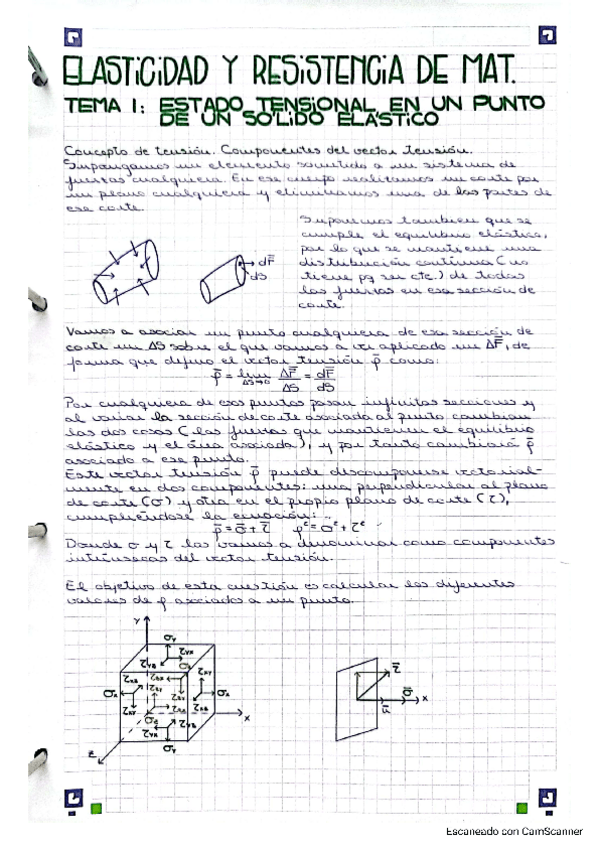 ELASTICIDAD Y RESISTENCIA DE MAT.
TEMA 1: ESTADO TENSIONAL EN UN PUNTO
DE UN SÓLIDO ELÁSTICO
Concepto de tensión. Componentes del vector tensión.
Supongamos un elemento sometido a un sistema de
fuerzas cualquiera. En ese cuerpo realizamos un corte por
un plano cualquiera y eliminamos una de las partes de
ese corte.
Suponemos también que se
cumple el equilibrio elástico,
por lo que se mantiene una
distribución continua (no
tiene pq ser cte.) de todas
las fuerzas en esa sección de
corte.
dF̄
dS
Vamos a asociar un punto cualquiera de esa sección de
corte un ΔS sobre el que vamos a ver aplicado un ΔF̄, de
forma que defino el vector tensión p̄ como:
p̄ = lim ΔS→0 ΔF̄/ΔS = dF̄/dS
Por cualquiera de esos puntos pasan infinitas secciones y
al variar la sección de corte asociada al punto cambian
las dos cosas (las fuerzas que mantienen el equilibrio
elástico y el área asociada), y por tanto cambiará p̄
asociado a ese punto.
Este vector tensión p̄ puede descomponerse vectorial-
mente en dos componentes: una perpendicular al plano
de corte (σ) y otra en el propio plano de corte (τ),
cumpliéndose la ecuación:
p̄ = σ̄ + τ̄
Donde σ y τ las vamos a denominar como componentes
intrínsecas del vector tensión.
El objetivo de esta cuestión es calcular los diferentes
valores de p asociados a un punto.
Y
σy
τyx
X
Z
σy
τ̄
σ̄
ū
x
Escaneado con CamScanner